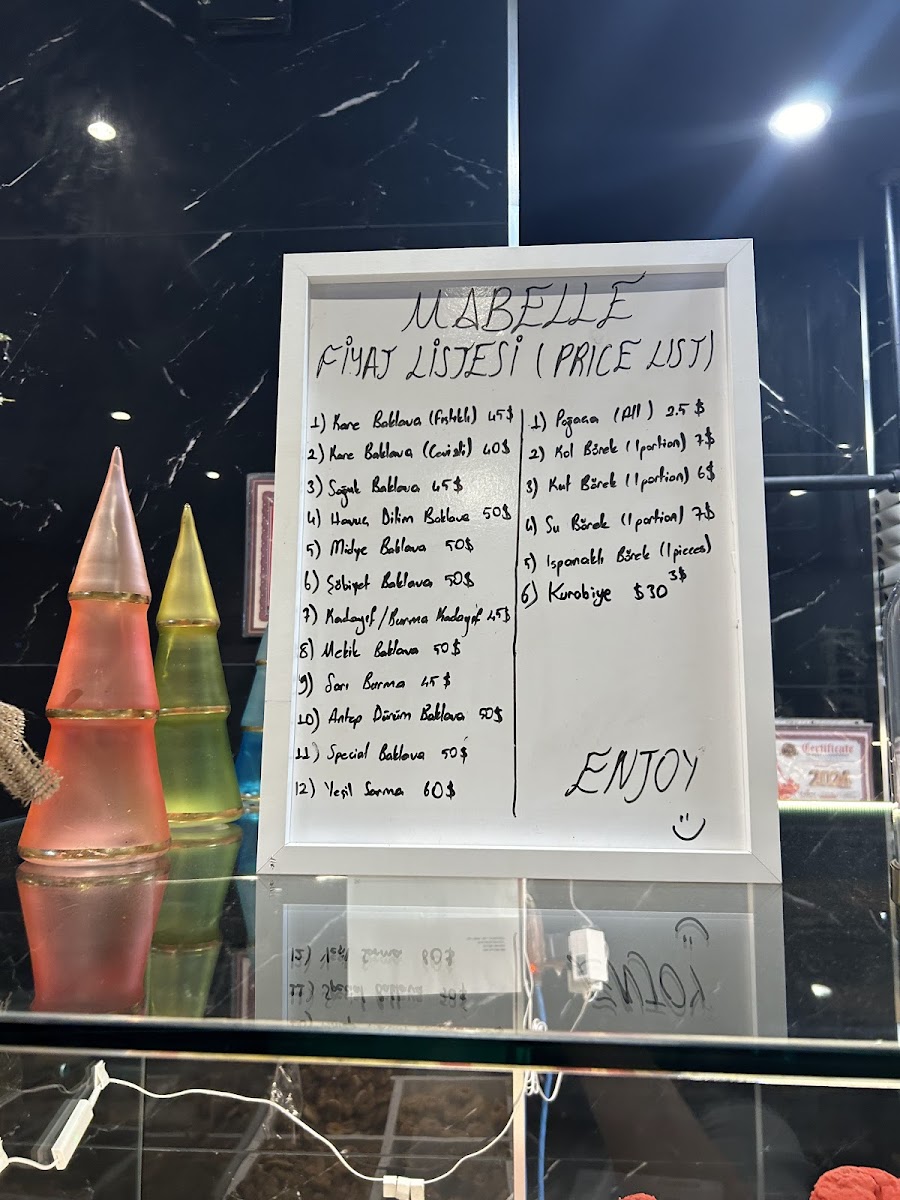 MABELLE
FİYAT LİSTESİ (PRICE LIST)
1) Kare Baklava (Fıstıklı) 45$
2) Kare Baklava (Cevizli) 40$
3) Soğuk Baklava 45$
4) Havuç Dilim Baklava 50$
5) Midye Baklava 50$
6) Şöbiyet Baklava 50$
7) Kadayıf/Burma Kadayıf 45$
8) Mekik Baklava 50$
9) Sarı Burma 45$
10) Antep Dürüm Baklava 50$
11) Special Baklava 50$
12) Yeşil Sarma 60$
1) Poğaça (All) 2.5$
2) Kol Börek (1 portion) 7$
3) Kut Börek (1 portion) 6$
4) Su Börek (1 portion) 7$
5) Ispanaklı Börek (1 pieces)
3$
6) Kurabiye $30
ENJOY
Certificate
2024